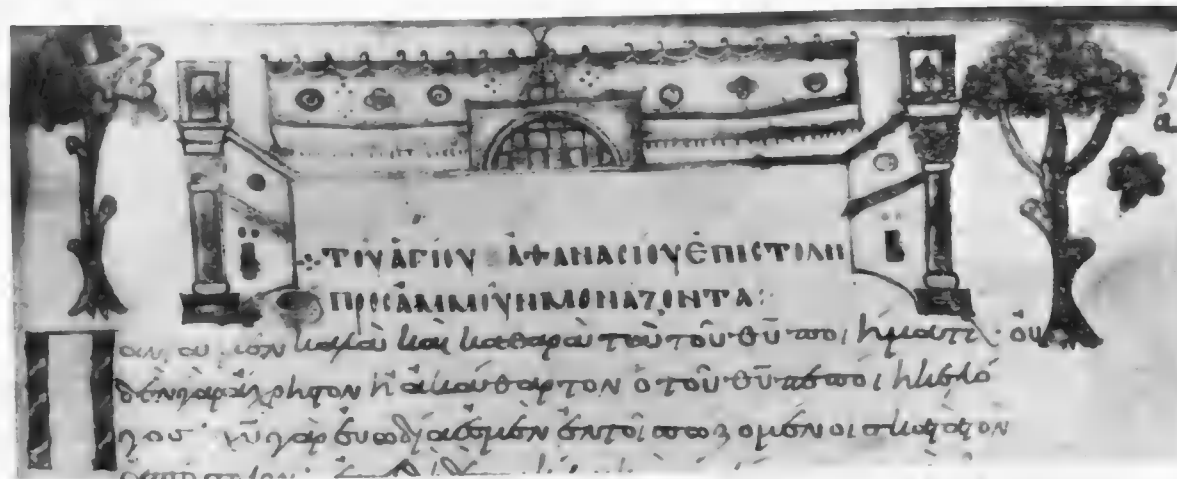 ΤΟΥ ἉΓΙΟΥ ἈΘΑΝΑΣΙΟΥ ἘΠΙΣΤΟΛΗ
ΠΡΟΣ ἈΜΜΟΥΝ ΜΟΝΑΖΟΝΤΑ:
καλὰ καὶ καθαρὰ τὰ τοῦ θῦ ποιήματα· οὐ
δὲν γὰρ ἄχρηστον ἢ ἀκάθαρτον ὁ τοῦ θῦ πεποίηκε λό
γος· χῦ γὰρ εὐωδία ἐσμὲν ἐν τοῖς σωζομένοις κατὰ τὸν